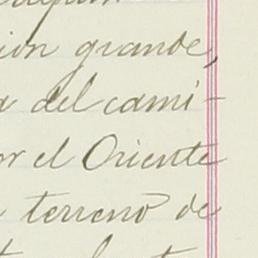 ion grande,
a del cami-
or el Oriente
terreno de